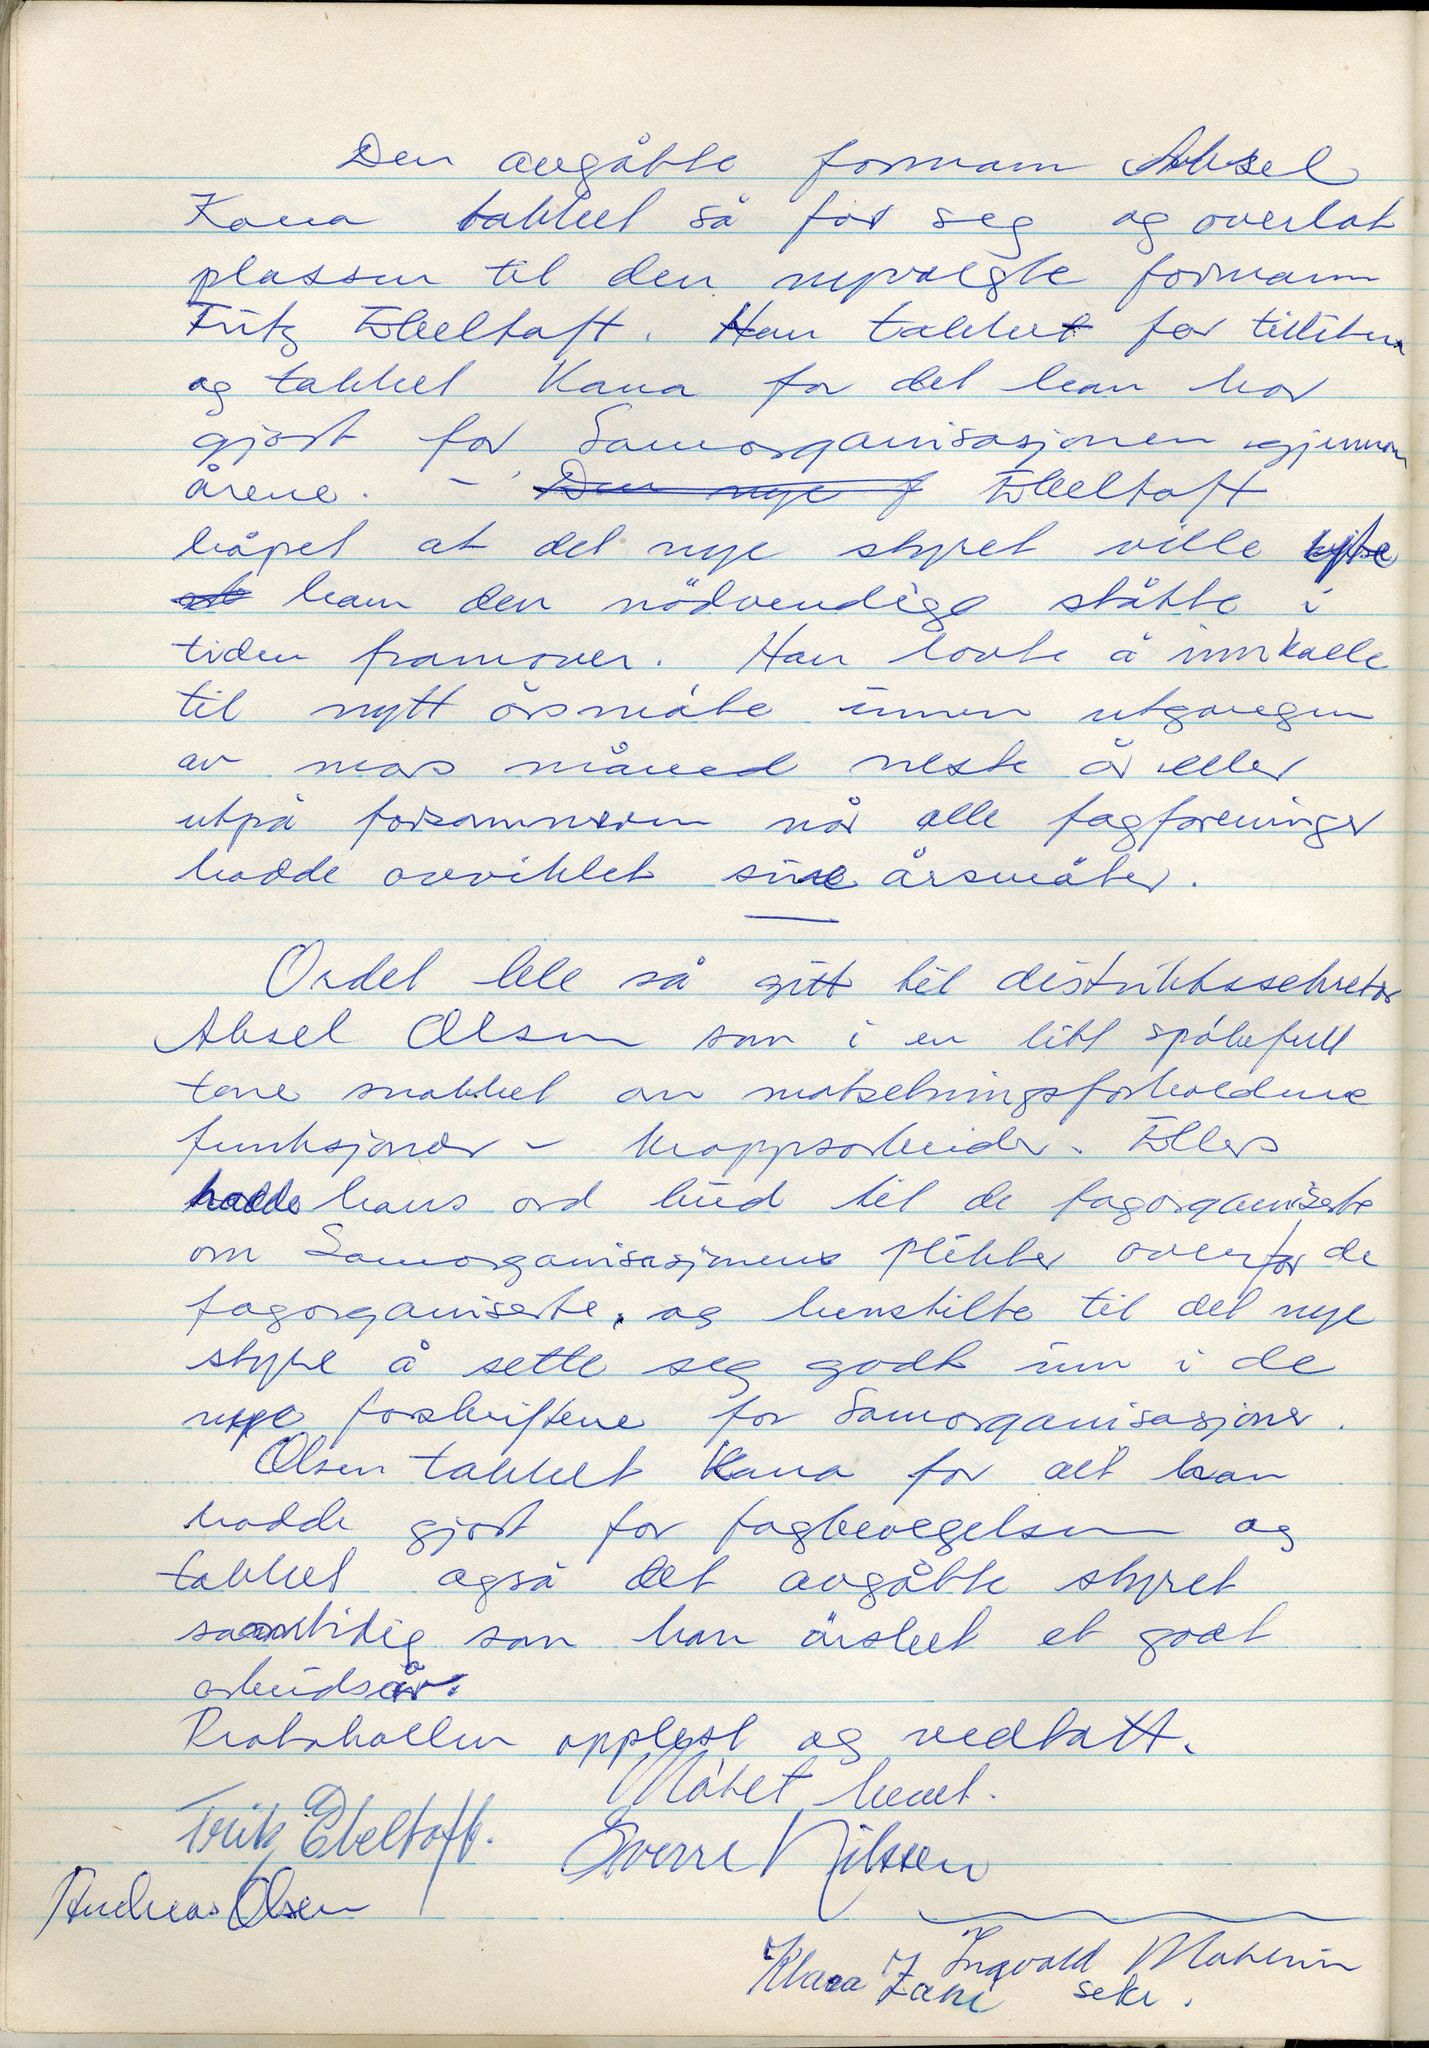 Den avgåtte formann Aksel
Kana takket så for seg og overlot
plassen til den nyvalgte formann
Fritz Ebeltoft. Han takket for tilliten
og takket Kana for det han har
gjort for Samorganisasjonen gjennom
årene. - Den nye f Ebeltoft
håpet at det nye styret ville
ham den nödvendige støtte i
tiden framover. Han lovte å innkalle
til nytt årsmøte innen utgangen
av mars måned neste år eller
utpå forsommeren når alle fagforeninger
hadde avviklet sine årsmøter.
Ordet ble så gitt til distriktssekretær
Aksel Olsen som i en litt spøkefull
tone snakket om motsetningsforholdene
funksjonær - kroppsarbeider. Ellers
hadde hans ord bud til de fagorganiserte
om Samorganisasjonens plikter overfor de
fagorganiserte, og henstilte til det nye
styre å sette seg godt inn i de
nye forskriftene for Samorganisasjoner.
Olsen takket Kana for alt han
hadde gjort for fagbevegelsen og
takket også det avgåtte styret
samtidig som han ønsket et godt
arbeidsår.
Protokollen opplest og vedtatt.
Møtet hevet.
Fritz Ebeltoft. Sverre Nilssen
Andreas Olsen
Ingvald Mathisen
Klara Zahl sekr.